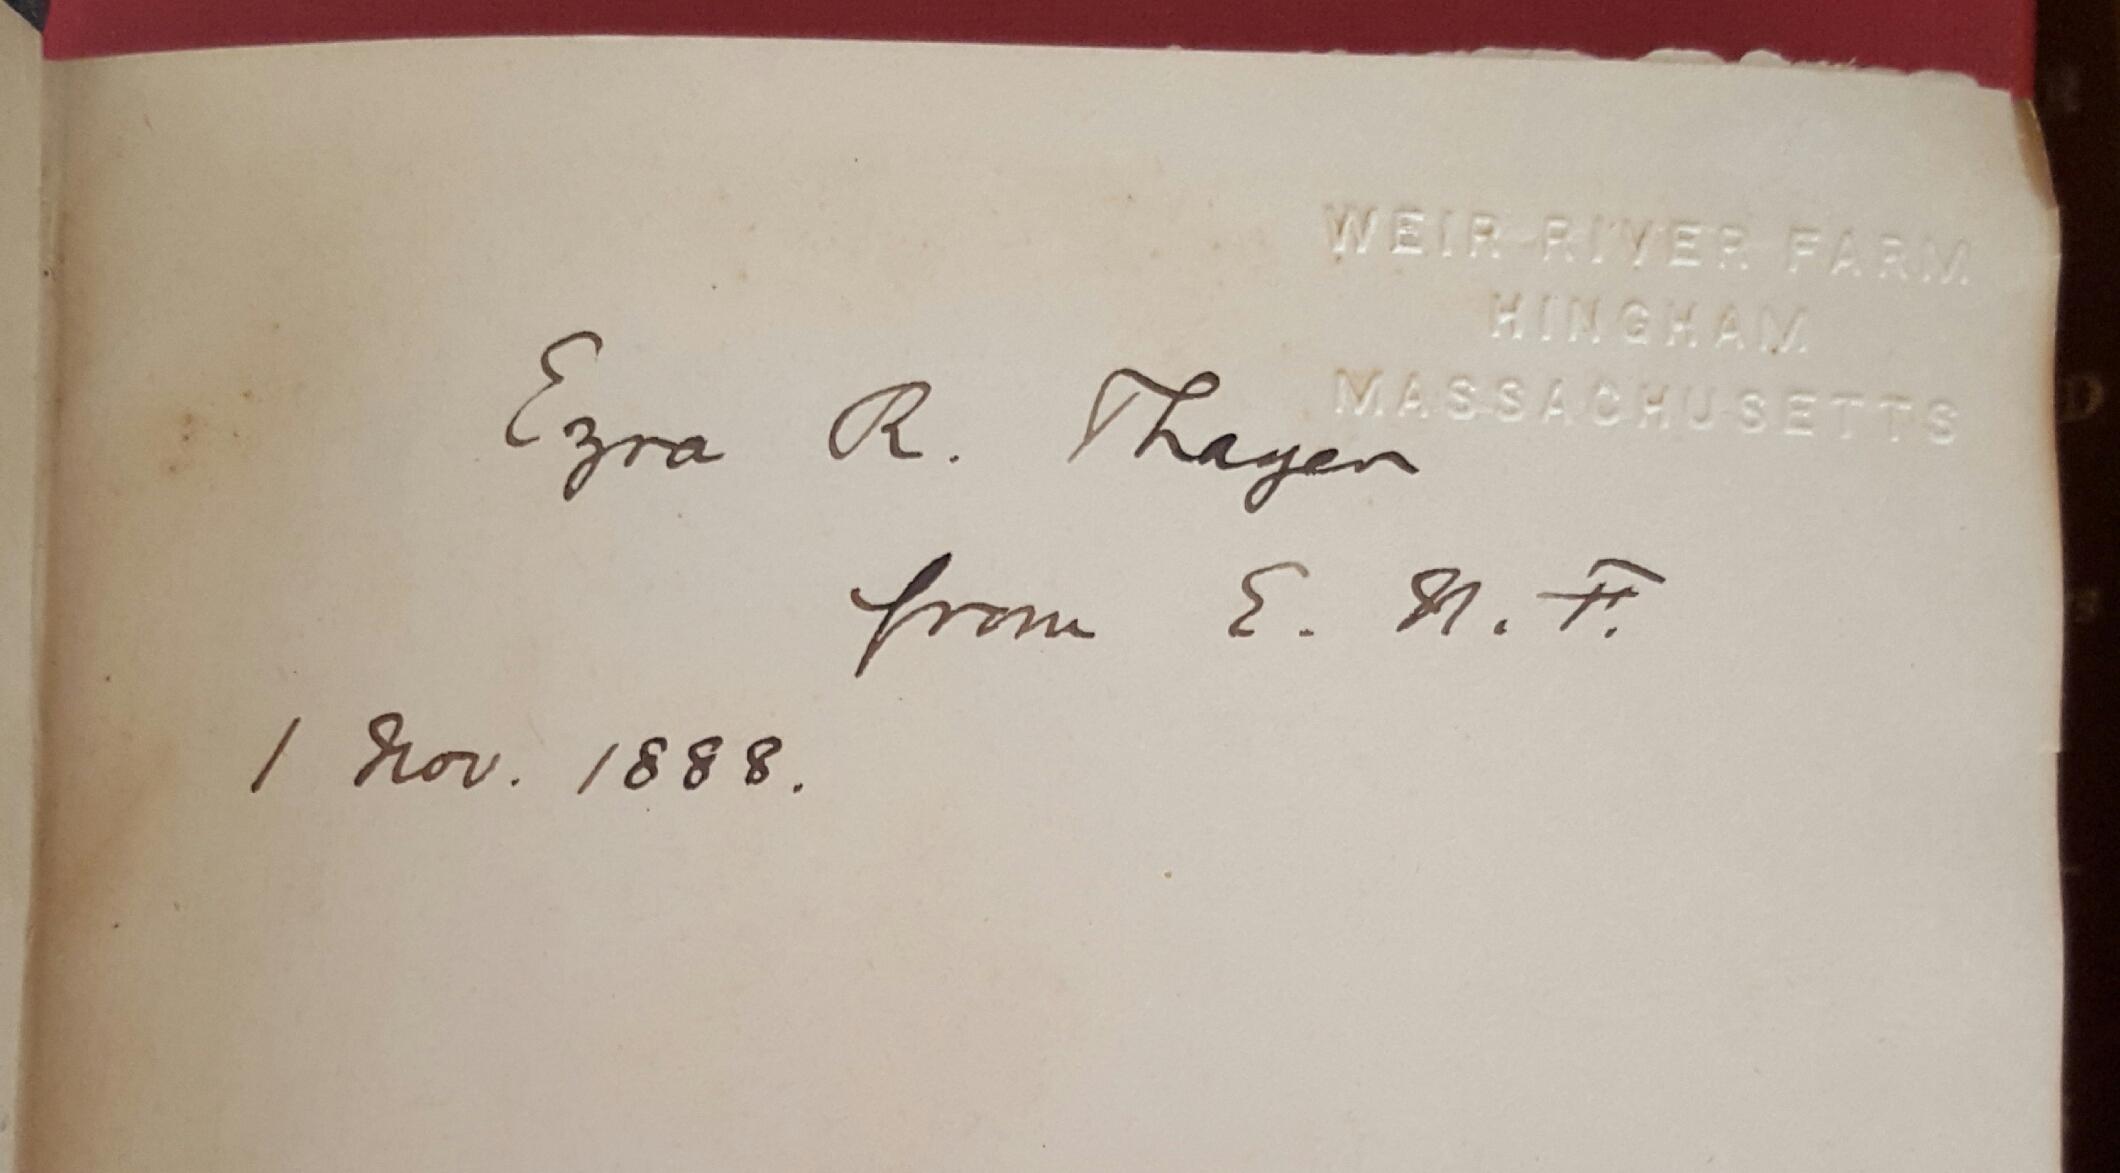 WEIR RIVER FARM
HINGHAM
MASSACHUSETTS
Ezra R. Thayer
from E. N. F.
1 Nov. 1888.